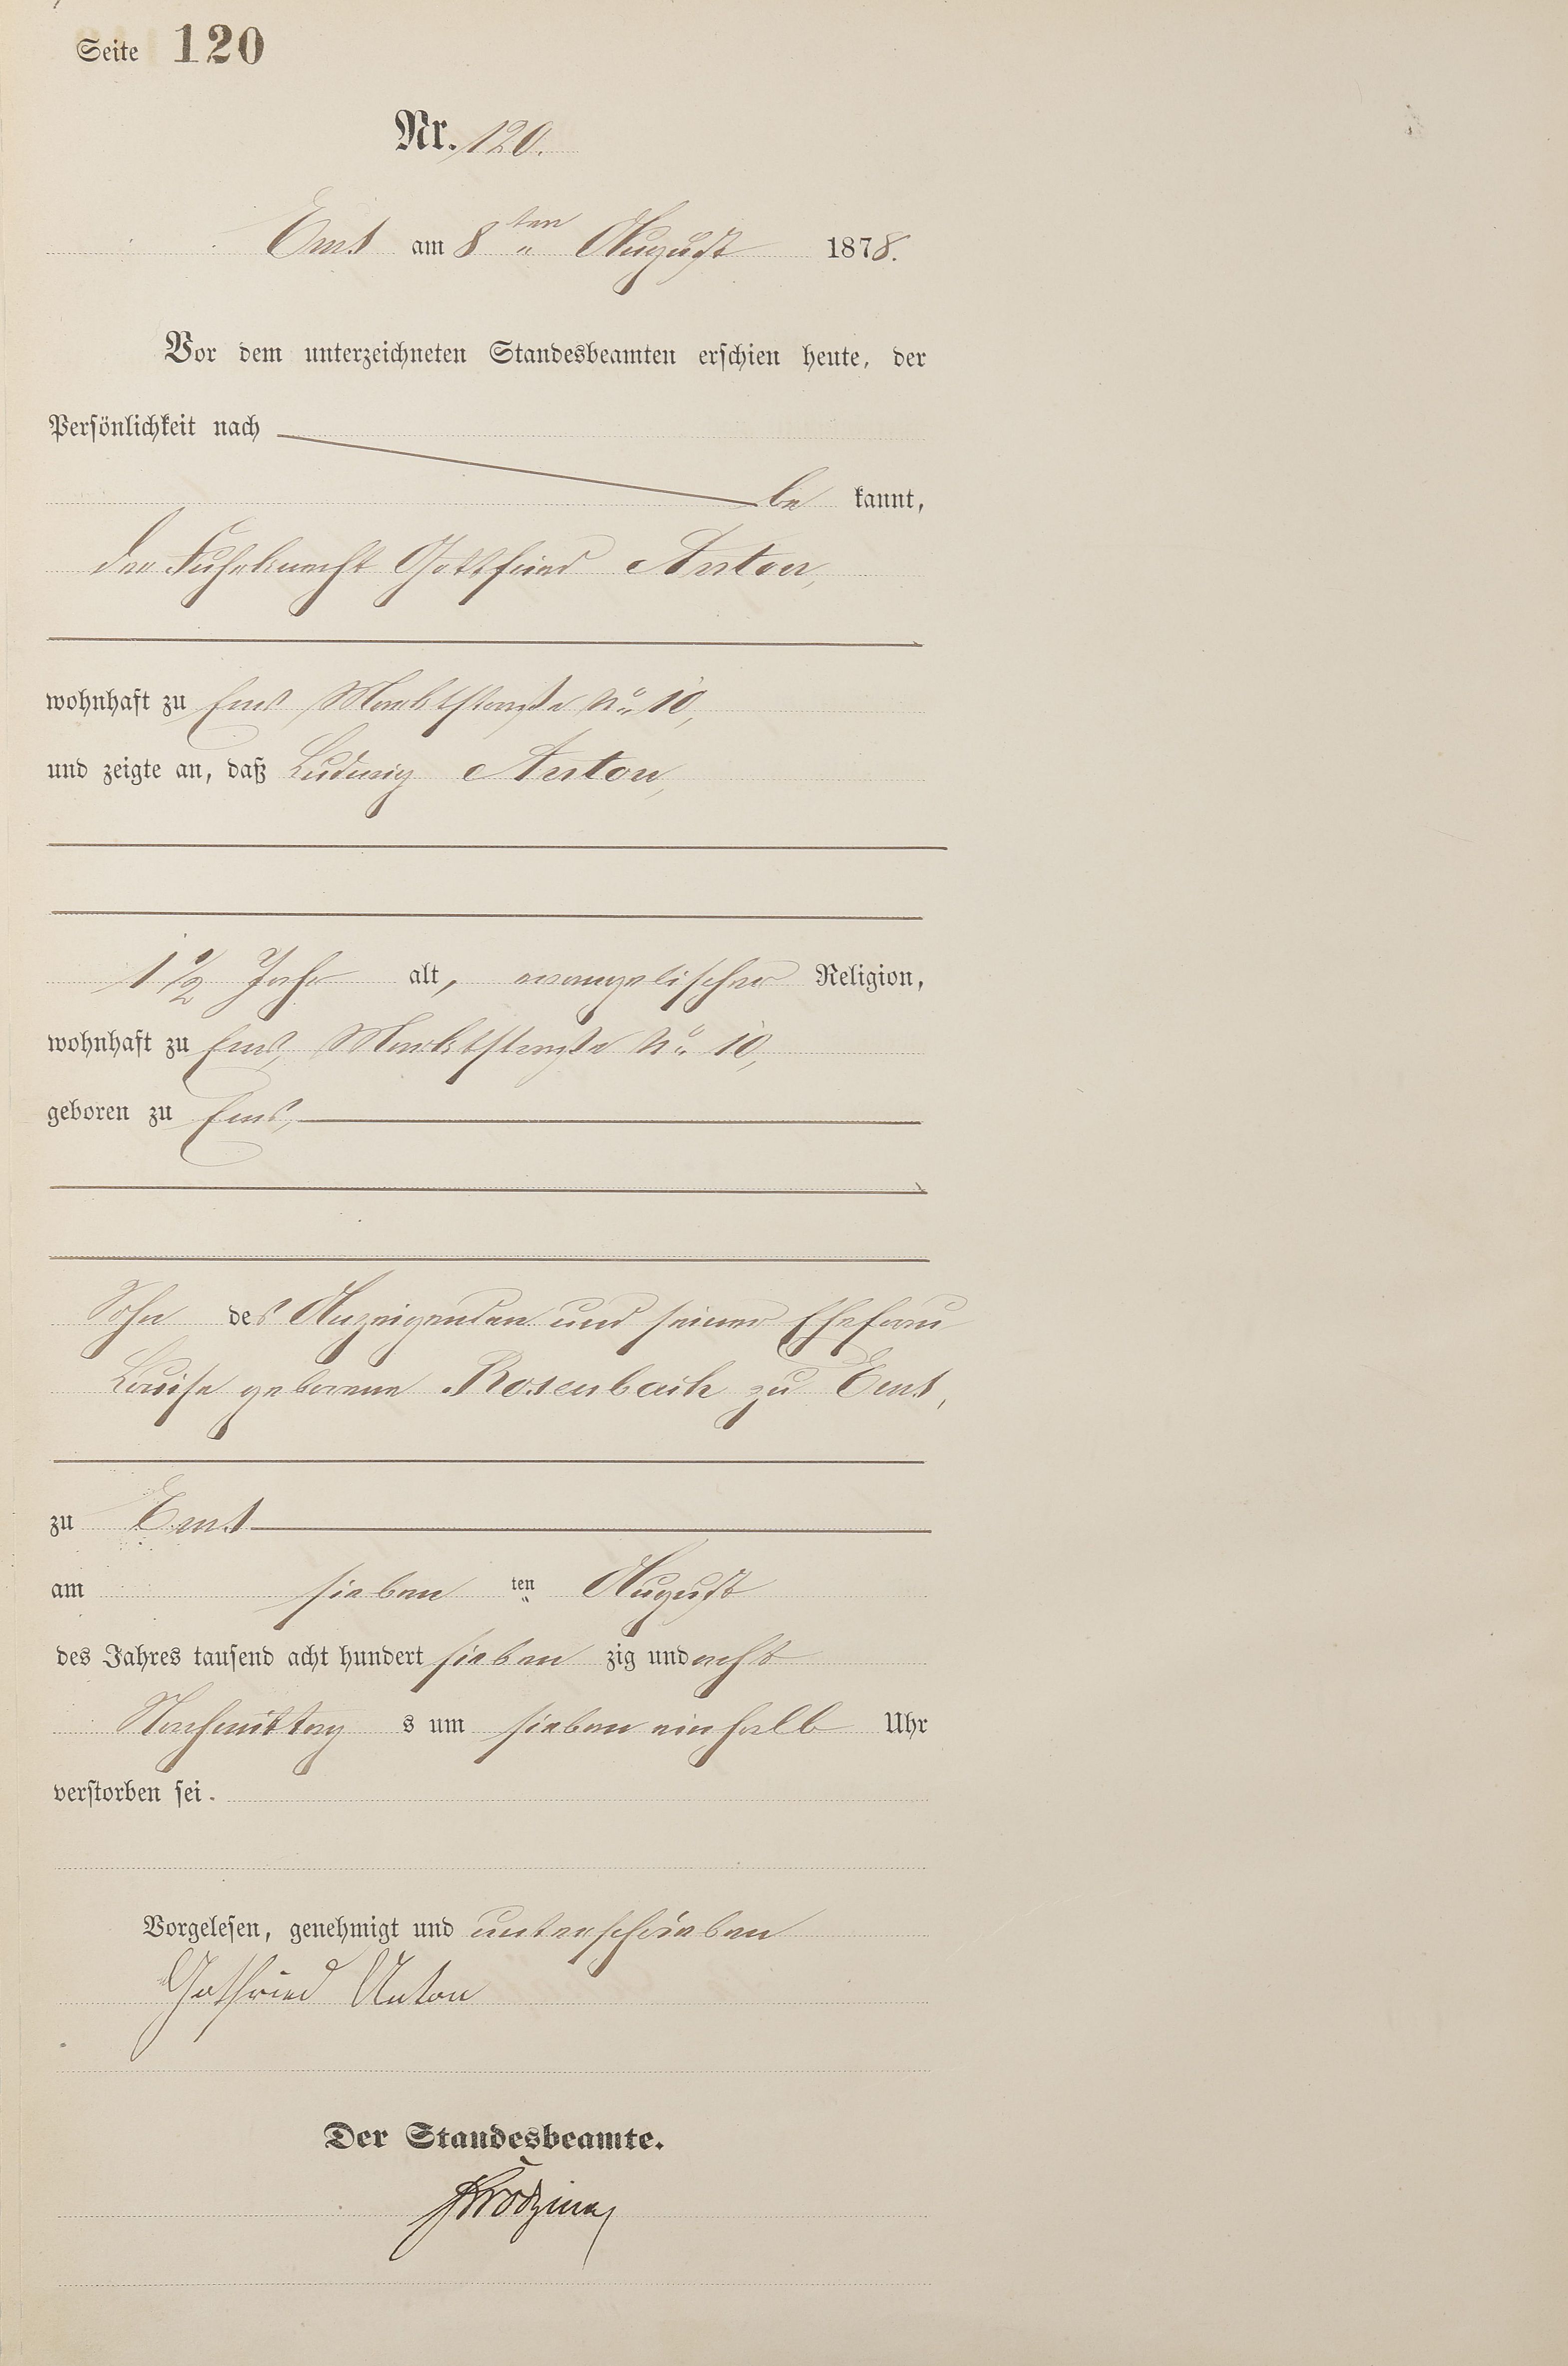 Seite 120
Nr. 120.
Ems am 8ten August 1878.
Vor dem unterzeichneten Standesbeamten erschien heute, der
Persönlichkeit nach
be kannt,
der Fuhrknecht Gottfried Anton,
wohnhaft zu Ems, Marktstraße No 10,
und zeigte an, daß Ludwig Anton,
1 1/2 Jahr alt, evangelischer Religion,
wohnhaft zu Ems, Marktstraße No 10,
geboren zu Ems,
Sohn des Anzeigenden und seiner Ehefrau
Louise geborene Rosenbach zu Ems,
zu Ems
am sieben ten August
des Jahres tausend acht hundert sieben zig und acht
Nachmittag s um sieben einhalb Uhr
verstorben sei.
Vorgelesen, genehmigt und unterschrieben
Gotfried Anton
Der Standesbeamte.